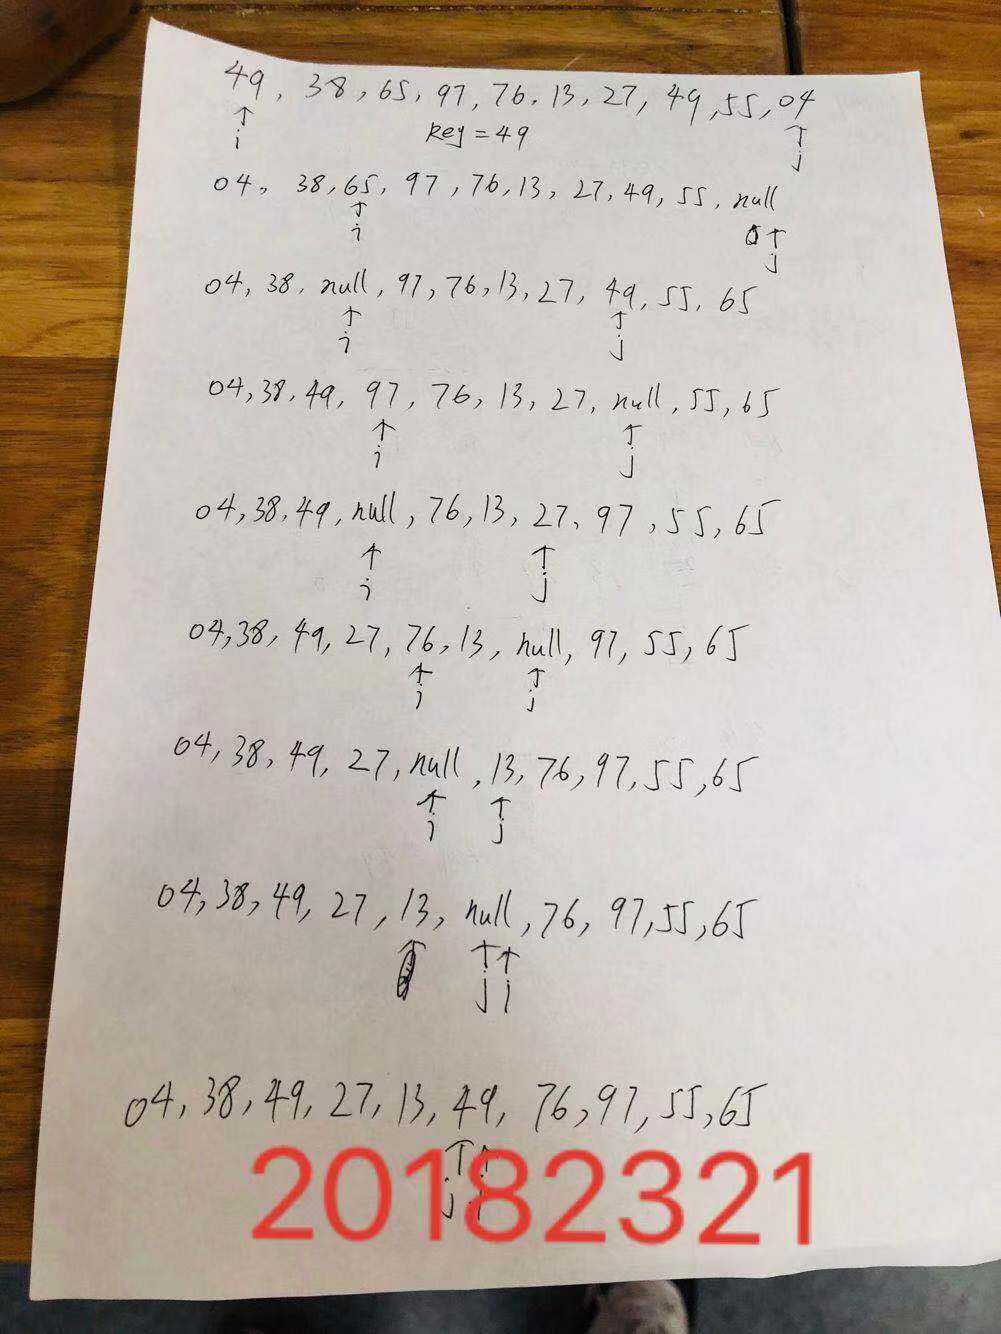 49, 38, 65, 97, 76, 13, 27, 49, 55, 04
↑ ↑
i key = 49 j
04, 38, 65, 97, 76, 13, 27, 49, 55, null
↑ ↑
i j
04, 38, null, 97, 76, 13, 27, 49, 55, 65
↑ ↑
i j
04, 38, 49, 97, 76, 13, 27, null, 55, 65
↑ ↑
i j
04, 38, 49, null, 76, 13, 27, 97, 55, 65
↑ ↑
i j
04, 38, 49, 27, 76, 13, null, 97, 55, 65
↑ ↑
i j
04, 38, 49, 27, null, 13, 76, 97, 55, 65
↑ ↑
i j
04, 38, 49, 27, 13, null, 76, 97, 55, 65
↑ ↑ ↑
j i
04, 38, 49, 27, 13, 49, 76, 97, 55, 65
↑ ↑
j i
20182321